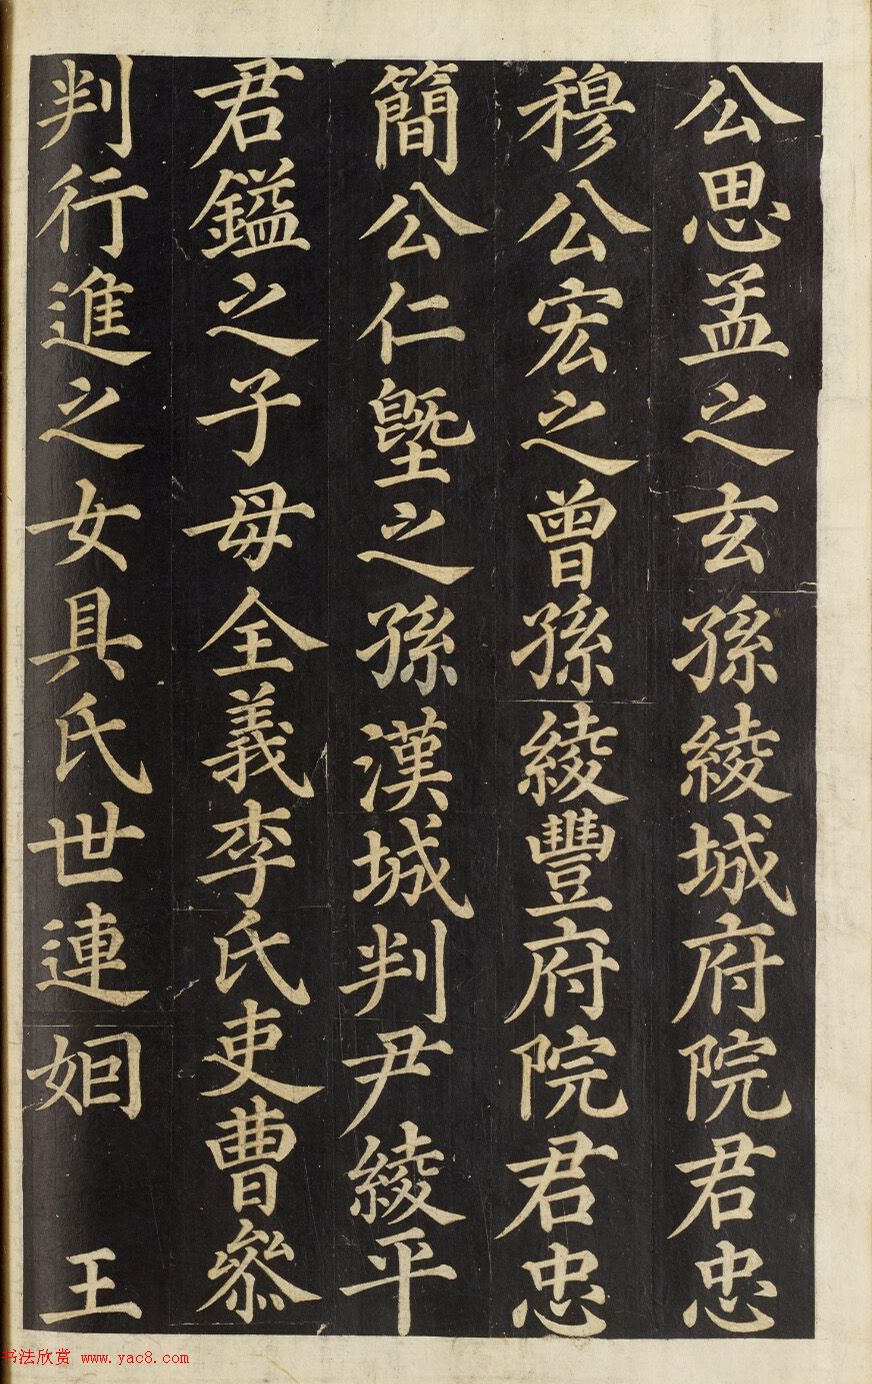 公思孟之玄孫綾城府院君忠
穆公宏之曾孫綾豐府院君忠
簡公仁墍之孫漢城判尹綾平
君鎰之子母全義李氏吏曹參
判行進之女具氏世連姻 王
书法欣赏 www.yac8.com